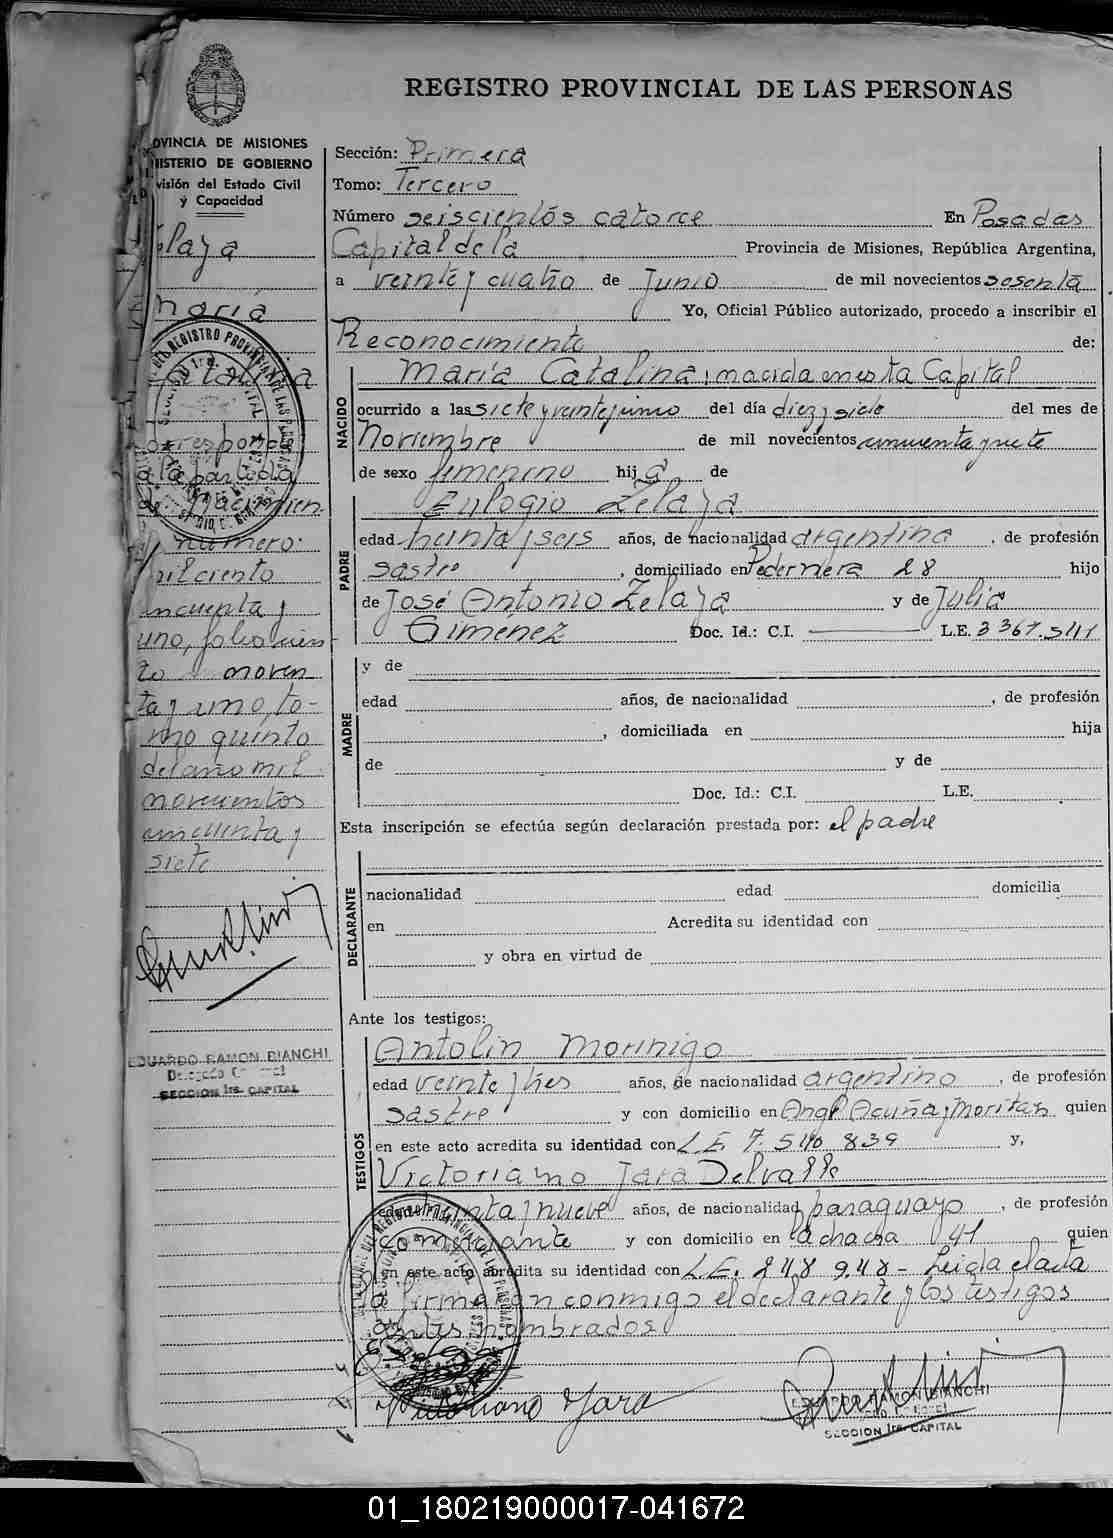 REGISTRO PROVINCIAL DE LAS PERSONAS
OVINCIA DE MISIONES
NISTERIO DE GOBIERNO
visión del Estado Civil
y Capacidad
elaya
María
Correspond
a la partida
de nacimien
número
mil ciento
incuenta y
uno, folio cien
to noven
ta y uno, to-
mo quinto
del año mil
novecientos
cincuenta y
siete
EDUARDO RAMON BIANCHI
SECCION 1ra. CAPITAL
Sección: Primera
Tomo: Tercero
Número seiscientos catorce En Posadas
Capital de la Provincia de Misiones, República Argentina,
a veinte y cuatro de Junio de mil novecientos sesenta
Yo, Oficial Público autorizado, procedo a inscribir el
Reconocimiento de:
NACIDO
María Catalina; nacida en esta Capital
ocurrido a las siete y veinte y uno del día diez y siete del mes de
Noviembre de mil novecientos cincuenta y siete
de sexo femenino hija de
PADRE
Eulogio Zelaya
edad treinta y seis años, de nacionalidad argentina, de profesión
sastre, domiciliado en Pedernera 28 hijo
de José Antonio Zelaya y de Julia
Giménez Doc. Id.: C.I. L.E. 3367.511
MADRE
y de
edad años, de nacionalidad , de profesión
, domiciliada en hija
de y de
Doc. Id.: C.I. L.E.
Esta inscripción se efectúa según declaración prestada por: el padre
DECLARANTE
nacionalidad edad domicilia
en Acredita su identidad con
y obra en virtud de
Ante los testigos:
TESTIGOS
Antolin Morinigo
edad veinte y tres años, de nacionalidad argentino, de profesión
sastre y con domicilio en Angel Acuña y Moritan quien
en este acto acredita su identidad con L.E. 7.540.839 y,
Victoriano Jara Delvalle
edad treinta y nueve años, de nacionalidad paraguayo, de profesión
comerciante y con domicilio en la chacra 41 quien
en este acto acredita su identidad con L.E. 248 948 - Leida el acta
la firma on conmigo el declarante y los testigos
antes nombrados
Victoriano Jara
EDUARDO RAMON BIANCHI
SECCION 1ra. CAPITAL
01_180219000017-041672